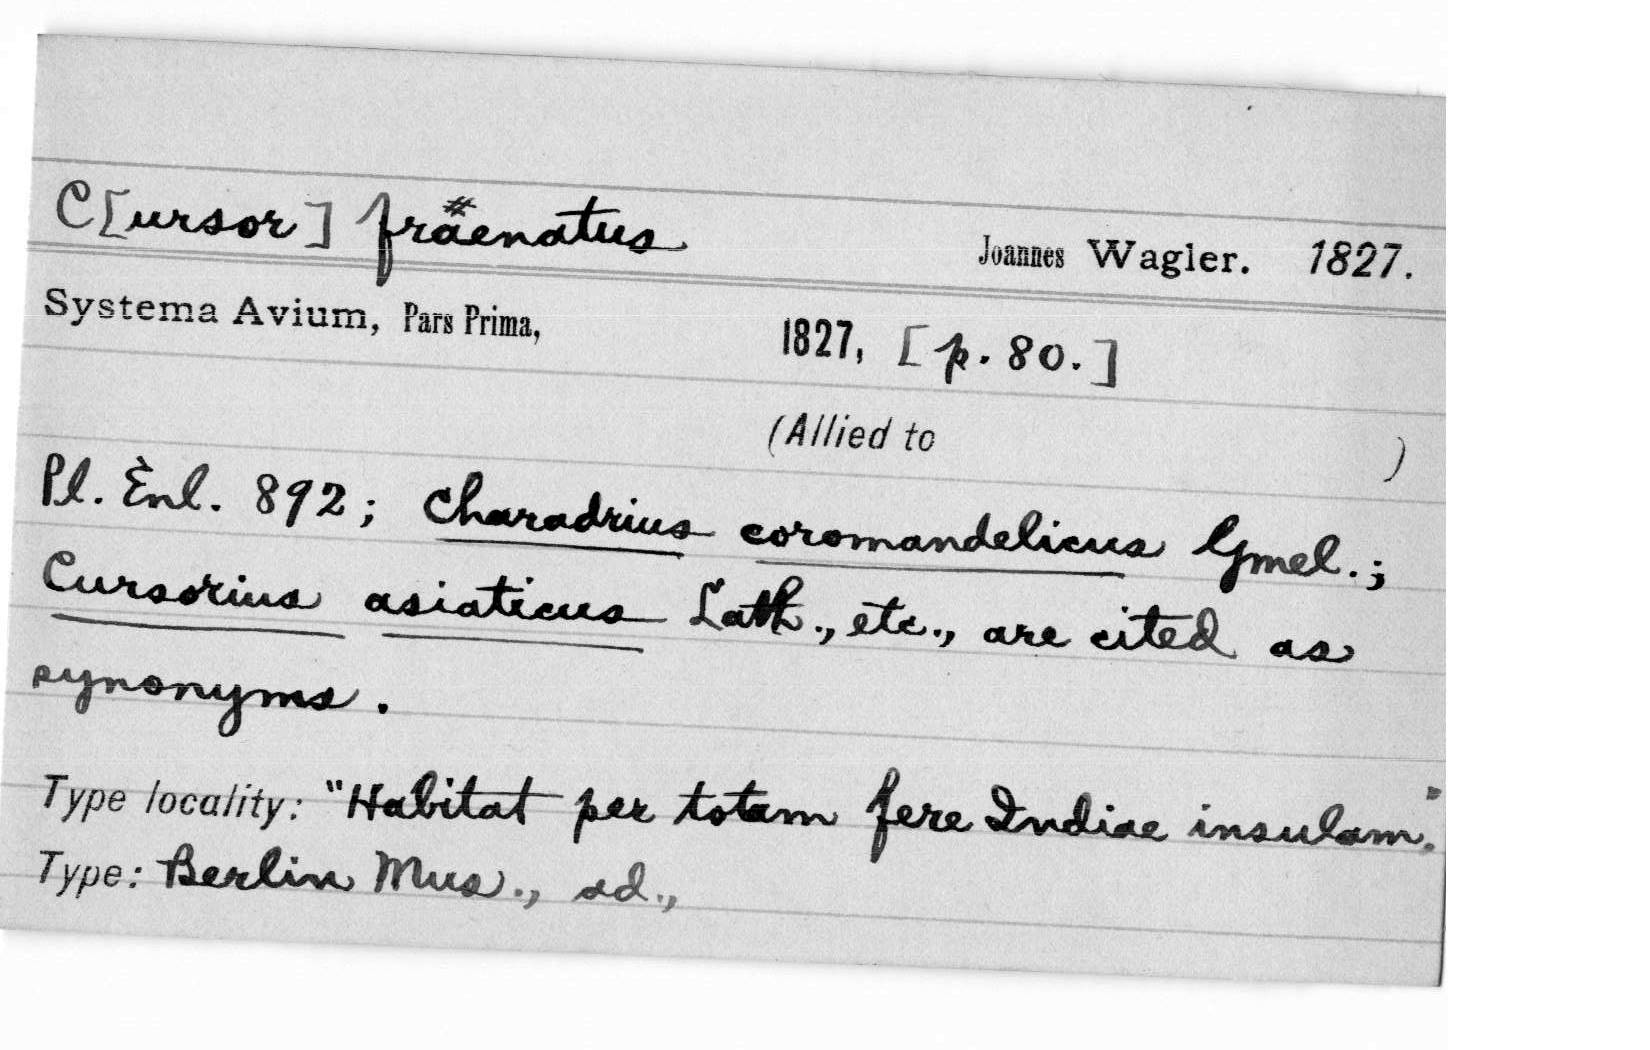 C[ursor] fräenatus Joannes Wagler. 1827.
Systema Avium, Pars Prima, 1827, [p. 80.]
(Allied to )
Pl. Enl. 892; Charadrius coromandelicus Gmel.;
Cursorius asiaticus Lath., etc., are cited as
synonyms.
Type locality: "Habitat per totam fere Indiae insulam."
Type: Berlin Mus., ad.,